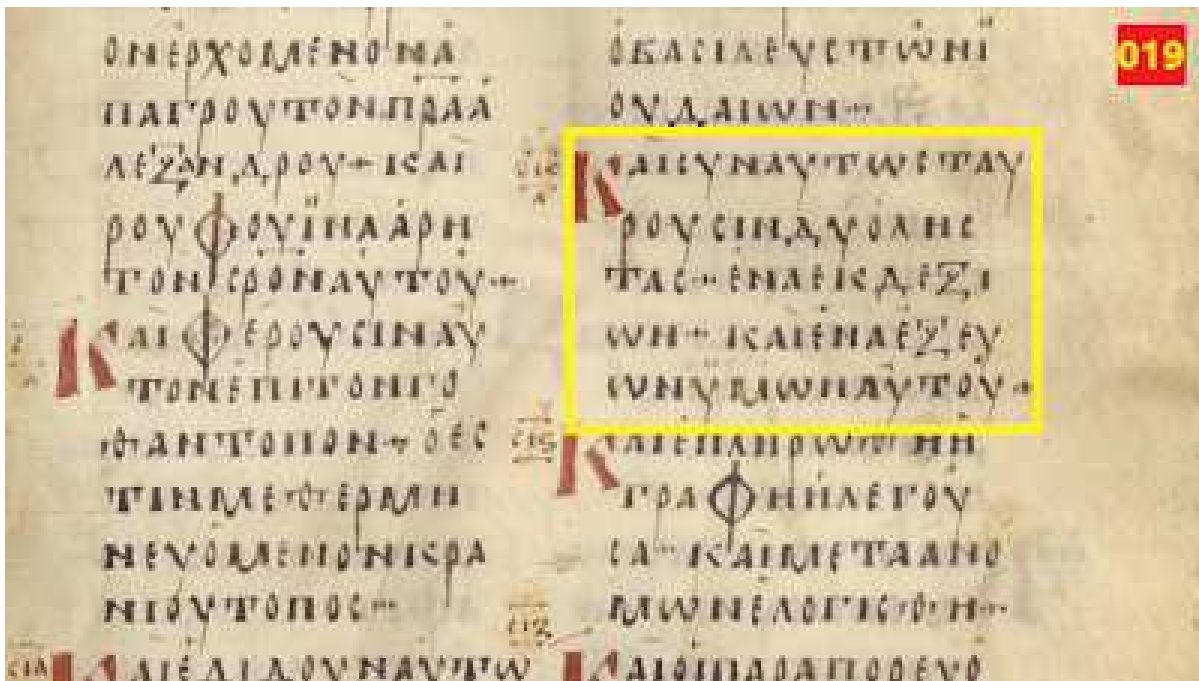 ΟΝΕΡΧΟΜΕΝΟΝΑ
ΠΑΓΡΟΥΤΟΝΠΡΑΑ
ΛΕΞΑΝΔΡΟΥ+ΚΑΙ
ΡΟΥΦΟΥΪΝΑΑΡΗ
ΤΟΝϹΡΟΝΑΥΤΟΥ+
ΚΑΙΦΕΡΟΥϹΙΝΑΥ
ΤΟΝΕΠΙΤΟΝΓΟ
ΘΑΝΤΟΠΟΝ+ΟΕϹ
ΤΙΝΜΕΘΕΡΜΗ
ΝΕΥΟΜΕΝΟΝΚΡΑ
ΝΙΟΥΤΟΠΟϹ+
ϹΙΔ ΚΑΙΕΔΙΔΟΥΝΑΥΤΩ
ΟΒΑϹΙΛΕΥϹΤΩΝΪ
ΟΥΔΑΙΩΝ+
ϹΙΕ ΚΑΙϹΥΝΑΥΤΩϹΤΑΥ
ΡΟΥϹΙΝΔΥΟΛΗϹ
ΤΑϹ+ΕΝΑΕΚΔΕΞΙ
ΩΝ+ΚΑΙΕΝΑΕΞΕΥ
ΩΝΫΜΩΝΑΥΤΟΥ+
ϹΙϚ ΚΑΙΕΠΛΗΡΩΘΗΗ
ΓΡΑΦΗΗΛΕΓΟΥ
ϹΑ+ΚΑΙΜΕΤΑΑΝΟ
ΜΩΝΕΛΟΓΙϹΘΗ+
ϹΙΖ ΚΑΙΟΙΠΑΡΑΠΟΡΕΥΟ
019